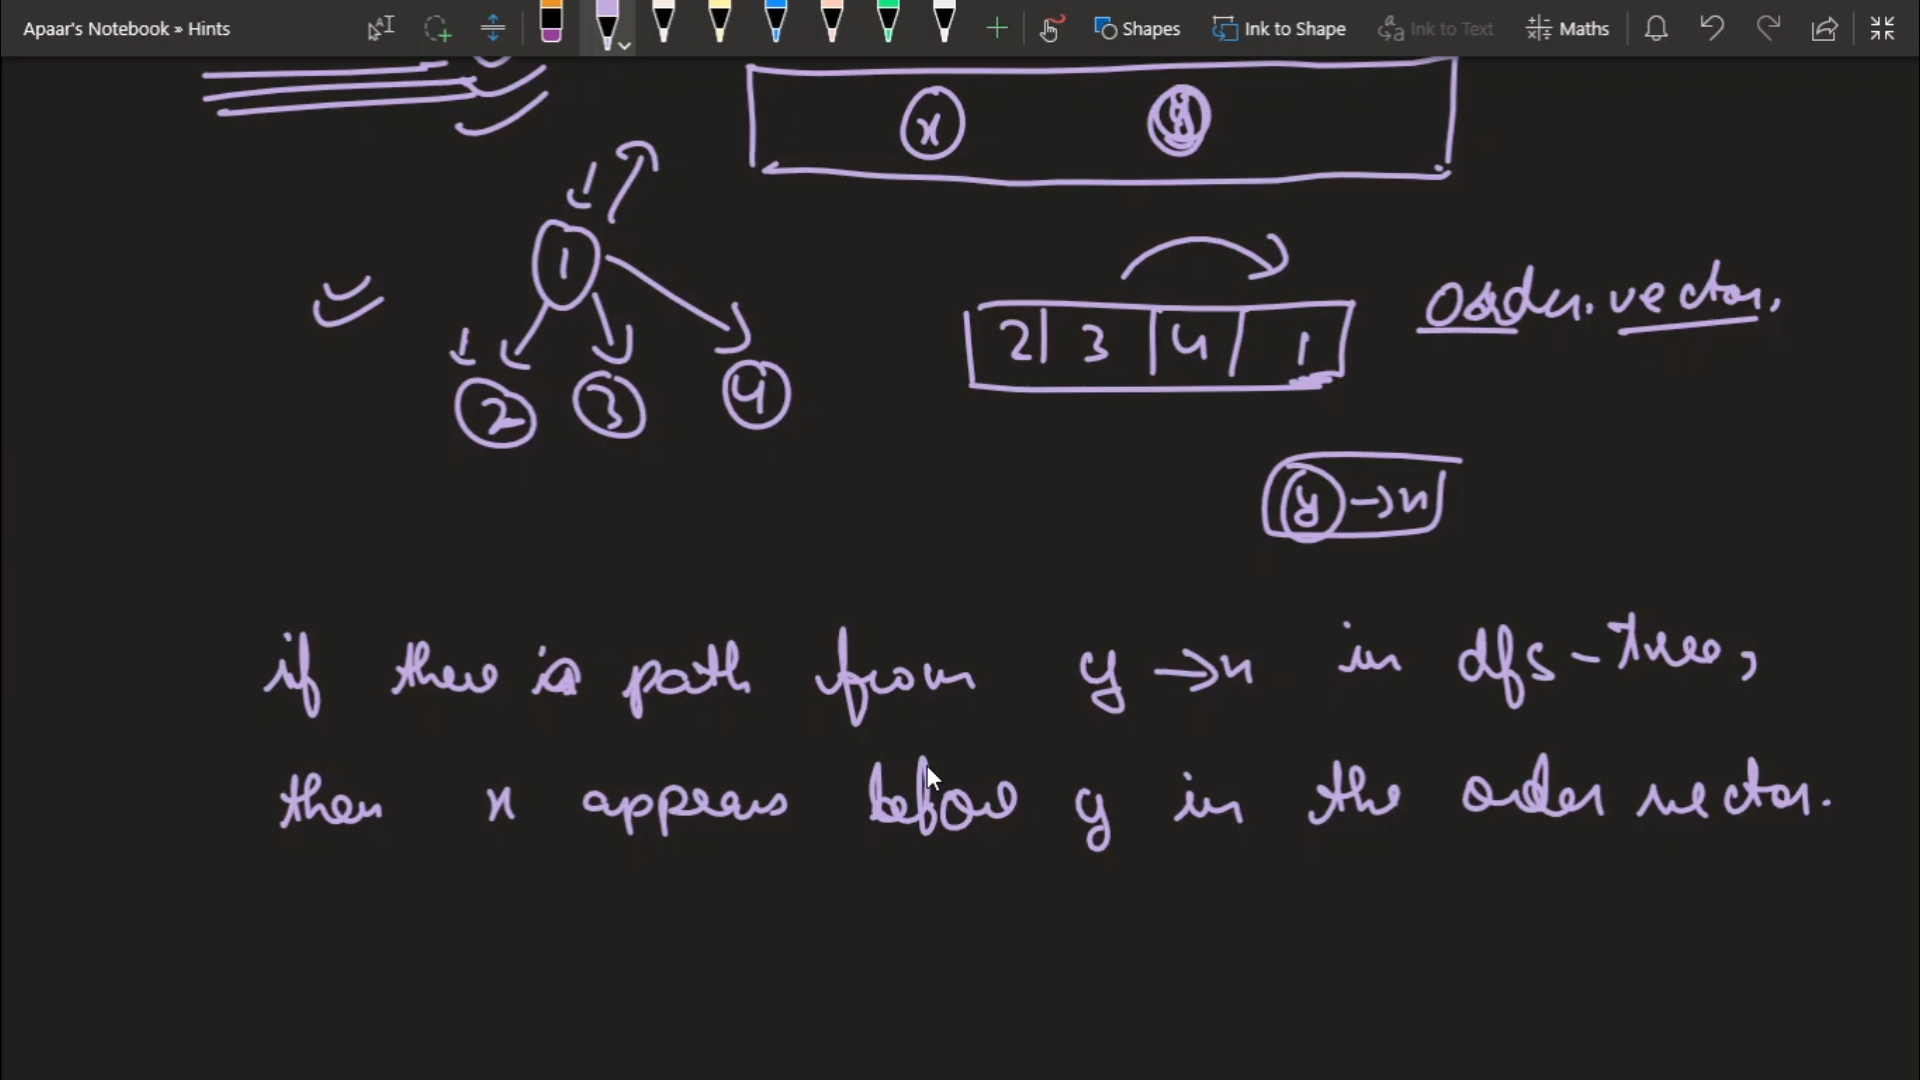 Apaar's Notebook » Hints
Shapes
Ink to Shape
Ink to Text
Maths
x y
1
2 3 4
2 3 4 1
order vector.
y → x
if there is path from y → x in dfs-tree,
then x appears before y in the order vector.